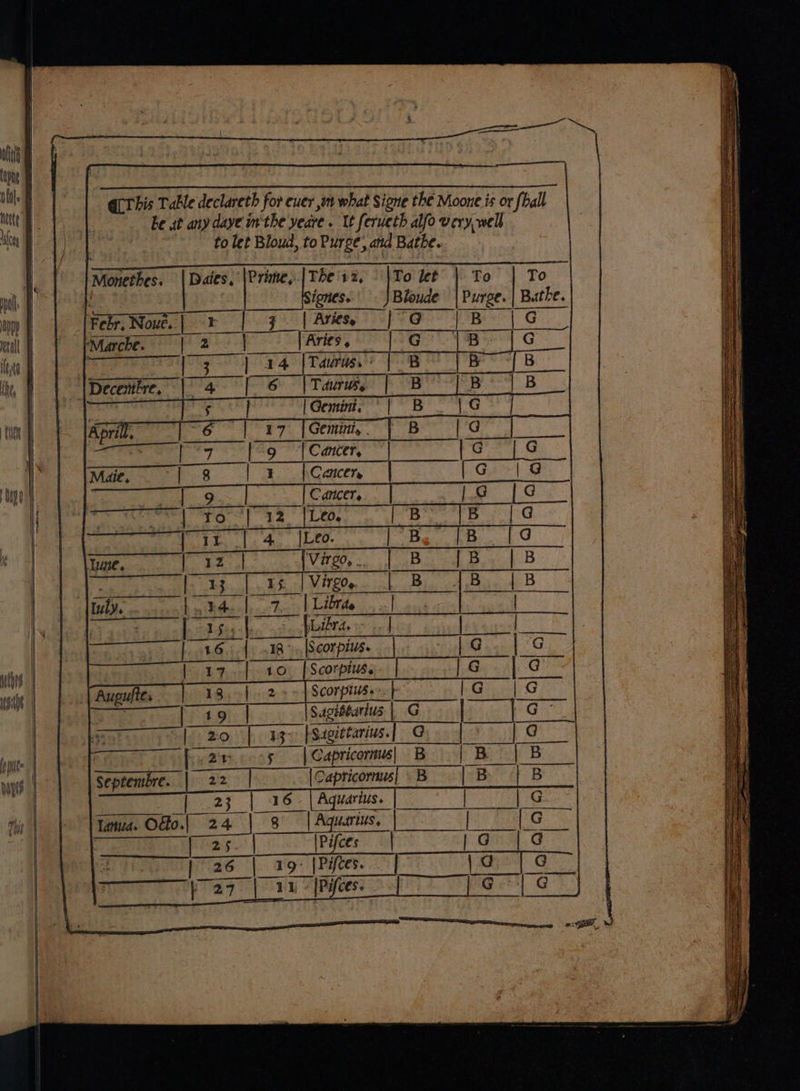 ❡This Table declareth for euer ,in what Signe the Moone is or ſhall
be at any daye in the yeare . It ſerueth alſo very, well
to let Bloud, to Purge, and Bathe.
Monethes. | Daies. | Prime, | The 12, Signes. | To let Bloude | To Purge. | To Bathe.
Febr.Ноuе. | 1 | 3 | Aries, | G | B | G
Marche. | 2 | | Aries, | G | B | G
| 3 | 14 | Taurus. | B | B | B
Decembre, | 4 | 6 | Taurus, | B | B | B
| 5 | | Gemini. | B | G |
Aprill. | 6 | 17 | Gemini, | B | G |
| 7 | 9 | Cancer, | | G | G
Maie. | 8 | 1 | Cancer, | | G | G
| 9 | | Cancer, | | G | G
| 10 | 12 | Leo, | B | B | G
| 11 | 4 | Leo. | B. | B | G
Iune. | 12 | | Virgo, | B | B | B
| 13 | 15 | Virgo, | B | B | B
Iuly. | 14 | 7 | Libra, | | |
| 15 | | Libra. | | |
| 16 | 18 | Scorpius. | | G | G
| 17 | 10 | Scorpius, | | G | G
Auguſtes | 18 | 2 | Scorpius. | | G | G
| 19 | | Sagittarius | G | | G
| 20 | 13 | Sagittarius. | G | | G
| 21 | 5 | Capricornus | B | B | B
Septembre. | 22 | | Capricornus | B | B | B
| 23 | 16 | Aquarius. | | | G
Ianua. Octo. | 24 | 8 | Aquarius, | | | G
| 25 | | Piſces | | G | G
| 26 | 19 | Piſces. | | G | G
| 27 | 11 | Piſces. | | G | G